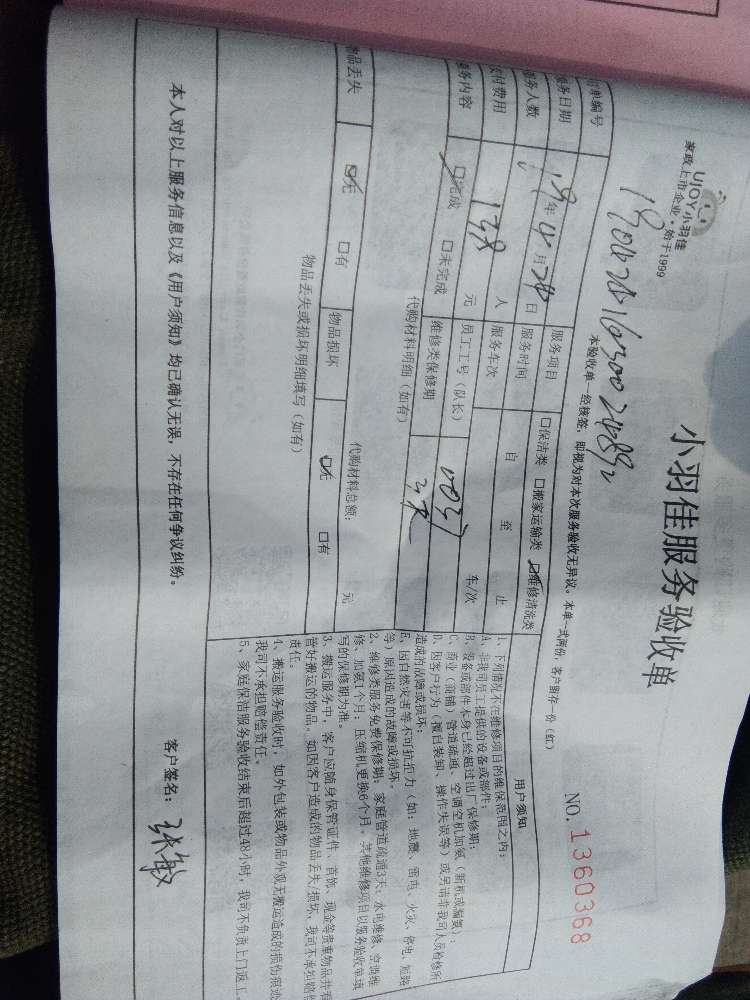 UJOY小羽佳
家政上市企业·始于1999
小羽佳服务验收单
NO. 1360368
本验收单一经核签，即视为对本次服务验收无异议。本单一式两份，客户留存一份（红）
订单编号
服务日期 年 4月 日 服务项目 □保洁类 □搬家运输类 ☑维修清洗类
服务人数 人 服务时间 自 至 止
应付费用 138 元 服务车次 车/次
员工工号（队长）
服务内容 ☑完成 □未完成 维修类保修期 3天
代购材料明细（如有）
代购材料总额： 元
物品丢失 ☑无 □有 物品损坏 ☑无 □有
物品丢失或损坏明细填写（如有）
用户须知
1、下列情况不在维修项目的维保范围之内：
A、非我司员工提供的设备或部件；
B、设备或部件本身已经超过出厂保修期；
C、商业（商铺）管道疏通、空调空机加氨（新机或漏氨）；
D、因客户行为（擅自装卸、操作失误等）或另请非我司人员检修所
造成的故障或损坏；
E、因自然灾害等不可抗拒力（如：地震、雷电、火灾、停电、短路
等）原因造成的故障或损坏。
2、维修类服务免费保修期：家庭管道疏通3天；水电维修、空调维
修、加氨1个月；压缩机更换6个月。其他维修项目以服务验收单填
写的保修期为准。
3、搬运服务中，客户应随身保管证件、首饰、现金等贵重物品并看
管好搬运的物品。如因客户造成的物品丢失/损坏，我司不承担赔偿
责任。
4、搬运服务验收时，如外包装或物品外观无搬运造成的损伤痕迹
我司不承担赔偿责任。
5、家庭保洁服务验收结束后超过48小时，我司不负责上门返工
本人对以上服务信息以及《用户须知》均已确认无误，不存在任何争议纠纷。
客户签名：张敏